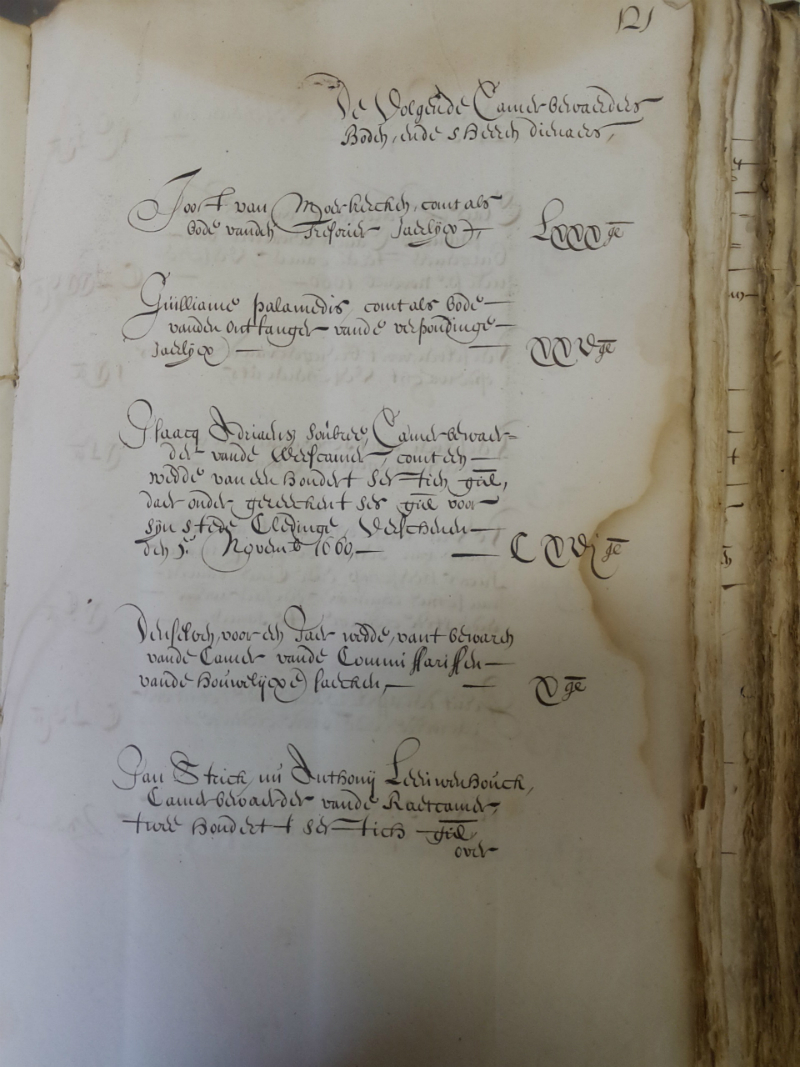 121
De Volgende Camerbewaerders
Boden, ende sHeeren dienaers,
Joost van Moerkercken, comt als
bode vanden Tresorier Jaerlijcx
LXXX gl
Guilliame palamedis, comt als bode
vanden ontfanger vande verpondinge
Jaerlijcx
XXV gl
Isaacq Adriaensz Soubree, Camerbewaer-
der vande Weescamer, comt een
wedde van een hondert sestich gul,
daer onder gereeckent ses gul voor
sijn stede Cledinge, Verschenen
den jen Novemb 1660,
CLXVI gl
Denselven, voor een Jaer wedde, vant bewaren
vande Camer vande Commissarissen
vande Houwelijcxe saecken,
X gl
Jan Strick, nu Anthonij Leeuwenhouck,
Camerbewaerder vande Raetcamer
twee hondert sestich gul
over